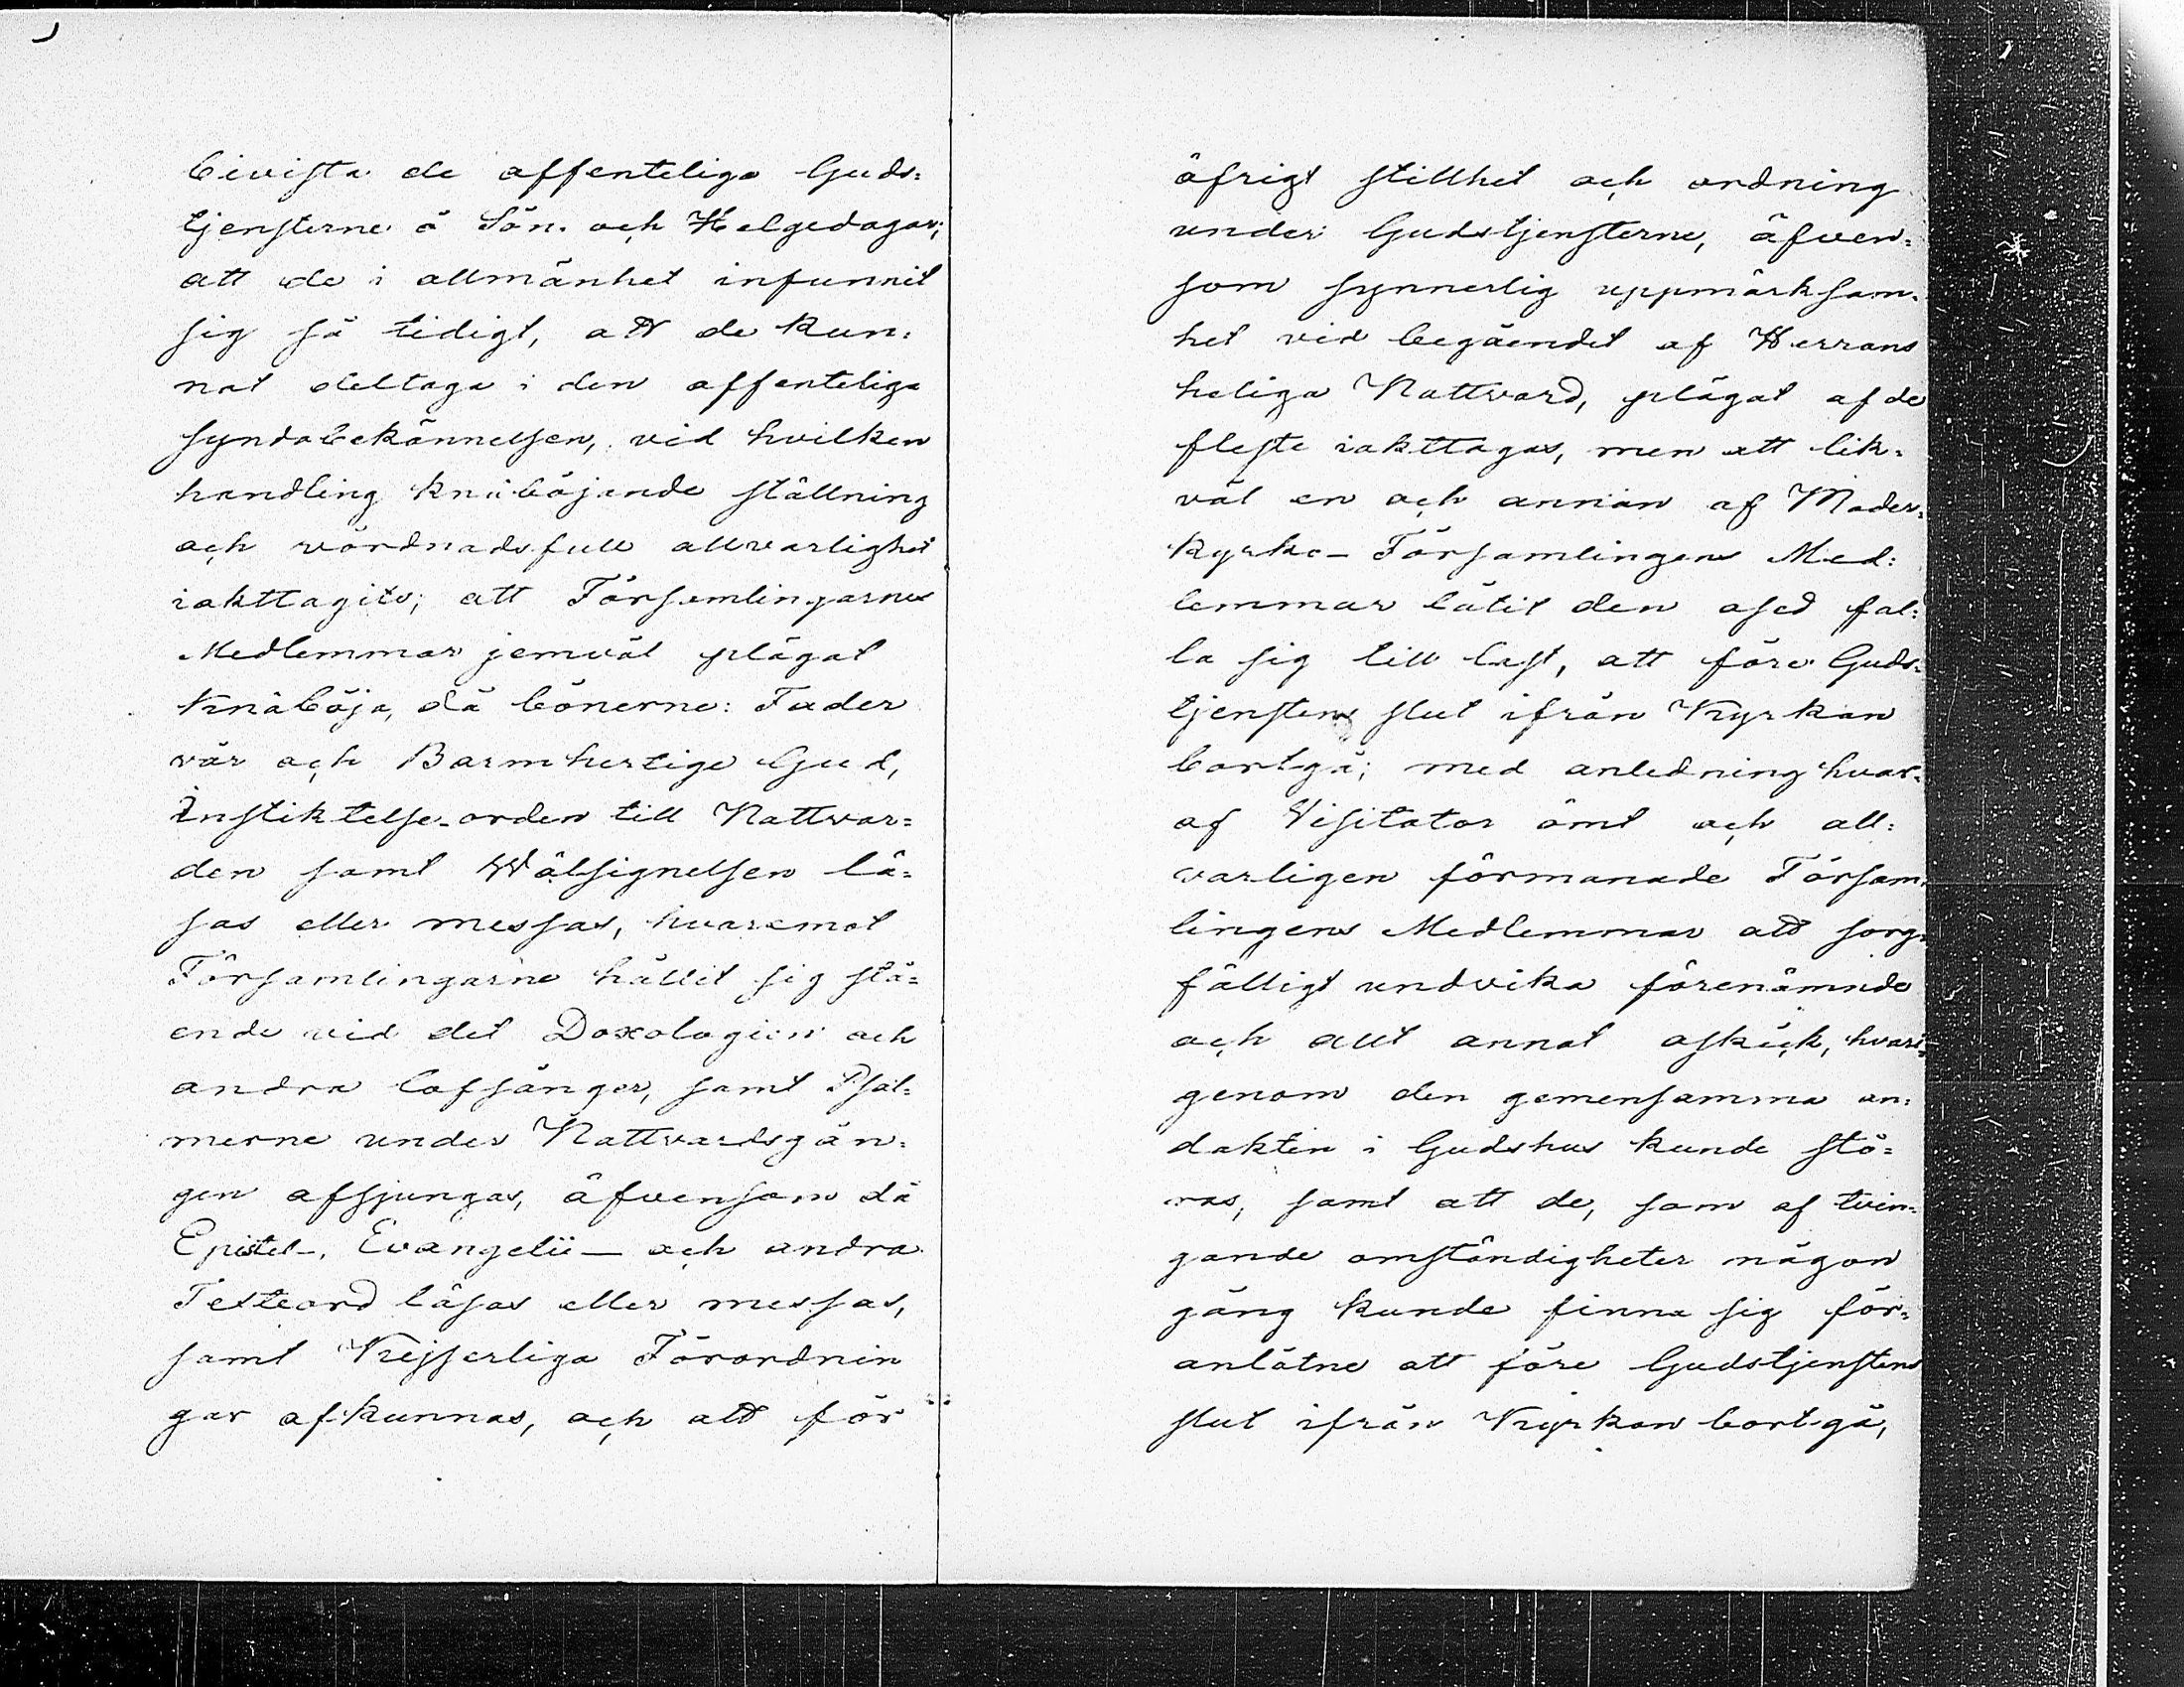 bivista de offenteliga Guds=
tjensterne å Sön- och Helgedagar;
att de i allmänhet infunnit
sig så tidigt, att de kun=
nat deltaga i den offenteliga
syndabekännelsen, vid hvilken
handling knäböjande ställning
och vördnadsfull allvarlighet
iakttagits; att Församlingarnes
Medlemmar jemväl plägat
knäböja, då bönerne: Fader
vår och Barmhertige Gud,
Instiktelse-orden till Nattvar=
den samt Wälsignelsen lä=
sas eller messas, hvaremot
Församlingarne hållit sig stå=
ende vid det Doxologien och
andra lofsånger, samt Psal=
merne under Nattvardsgån=
gen afsjungas, äfvensom då
Epistel-, Evangelii- och andra
Texteord läsas eller messas,
samt Kejserliga Förordnin
gar afkunnas, och att för
öfrigt stillhet och ordning
under Gudstjensterne, äfven=
som synnerlig uppmärksam=
het vid begåendet af Herrans
heliga Nattvard, plägat af de
fleste iakttagas, men att lik=
väl en och annan af Moder=
kyrko-Församlingens Med=
lemmar låtit den osed fal=
la sig till last, att före Guds=
tjenstens slut ifrån Kyrkan
bortgå; med anledning hvar=
af Visitator ömt och all=
varligen förmanade Försam=
lingens Medlemmar att sorg=
fälligt undvika förenämnde
och allt annat oskick, hvari=
genom den gemensamma an=
dakten i Gudshus kunde stö=
ras, samt att de, som af tvin=
gande omständigheter någon
gång kunde finna sig för=
anlåtne att före Gudstjenstens
slut ifrån Kyrkan bortgå,